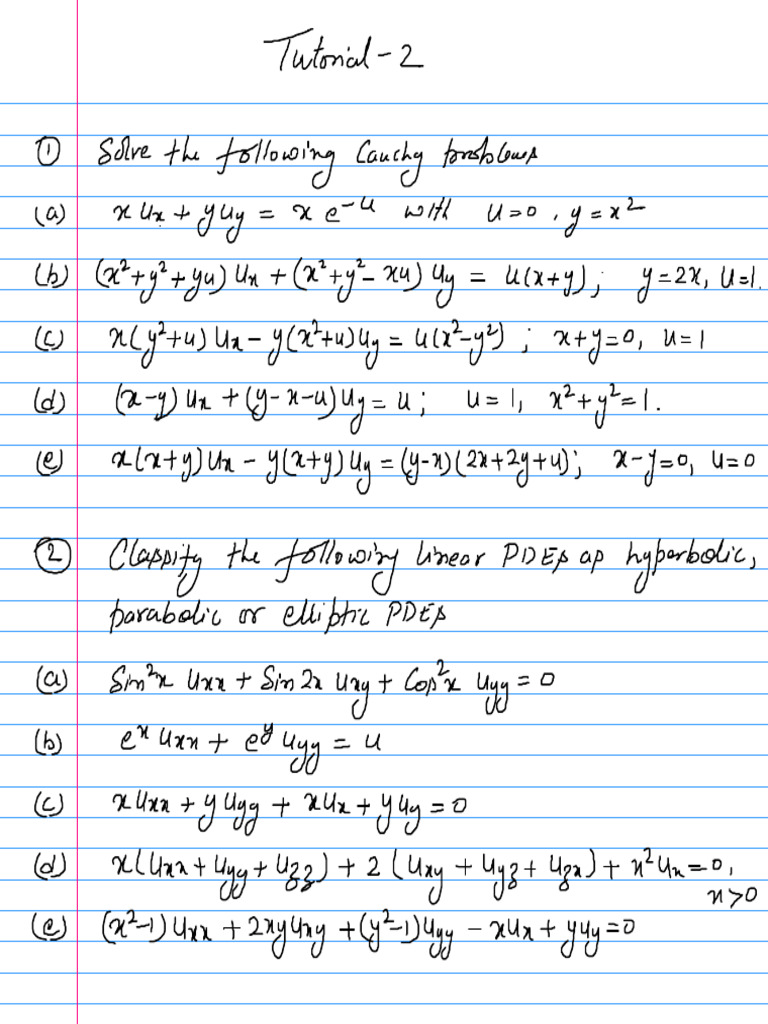 Tutorial - 2
① Solve the following Cauchy problems
(a) x uₓ + y u_y = x e^{-u} with u=0, y=x²
(b) (x²+y²+yu) uₓ + (x²+y²-xu) u_y = u(x+y); y=2x, u=1.
(c) x(y²+u) uₓ - y(x²+u) u_y = u(x²-y²); x+y=0, u=1
(d) (x-y) uₓ + (y-x-u) u_y = u; u=1, x²+y²=1.
(e) x(x+y) uₓ - y(x+y) u_y = (y-x)(2x+2y+u); x-y=0, u=0
② Classify the following linear PDEs as hyperbolic,
parabolic or elliptic PDEs
(a) Sin²x uₓₓ + Sin 2x u_{xy} + Cos²x u_{yy} = 0
(b) e^x uₓₓ + e^y u_{yy} = u
(c) x uₓₓ + y u_{yy} + x uₓ + y u_y = 0
(d) x(uₓₓ + u_{yy} + u_{zz}) + 2(u_{xy} + u_{yz} + u_{zx}) + x² uₓ = 0,
x>0
(e) (x²-1) uₓₓ + 2xy u_{xy} + (y²-1) u_{yy} - x uₓ + y u_y = 0